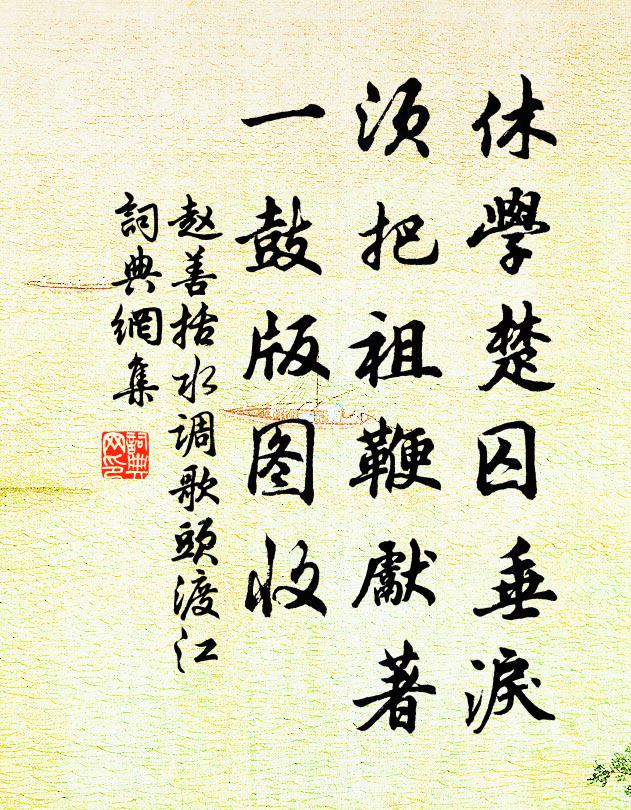 休學楚囚垂淚
須把祖鞭獻著
一鼓版图收
赵善括水调歌頭渡江
詞典網集
詞典
网印